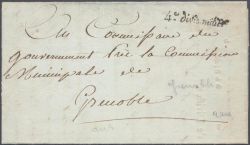 4e. division
Au Commissaire du
gouvernement Près la Commission
Municipale de
Grenoble
grenoble